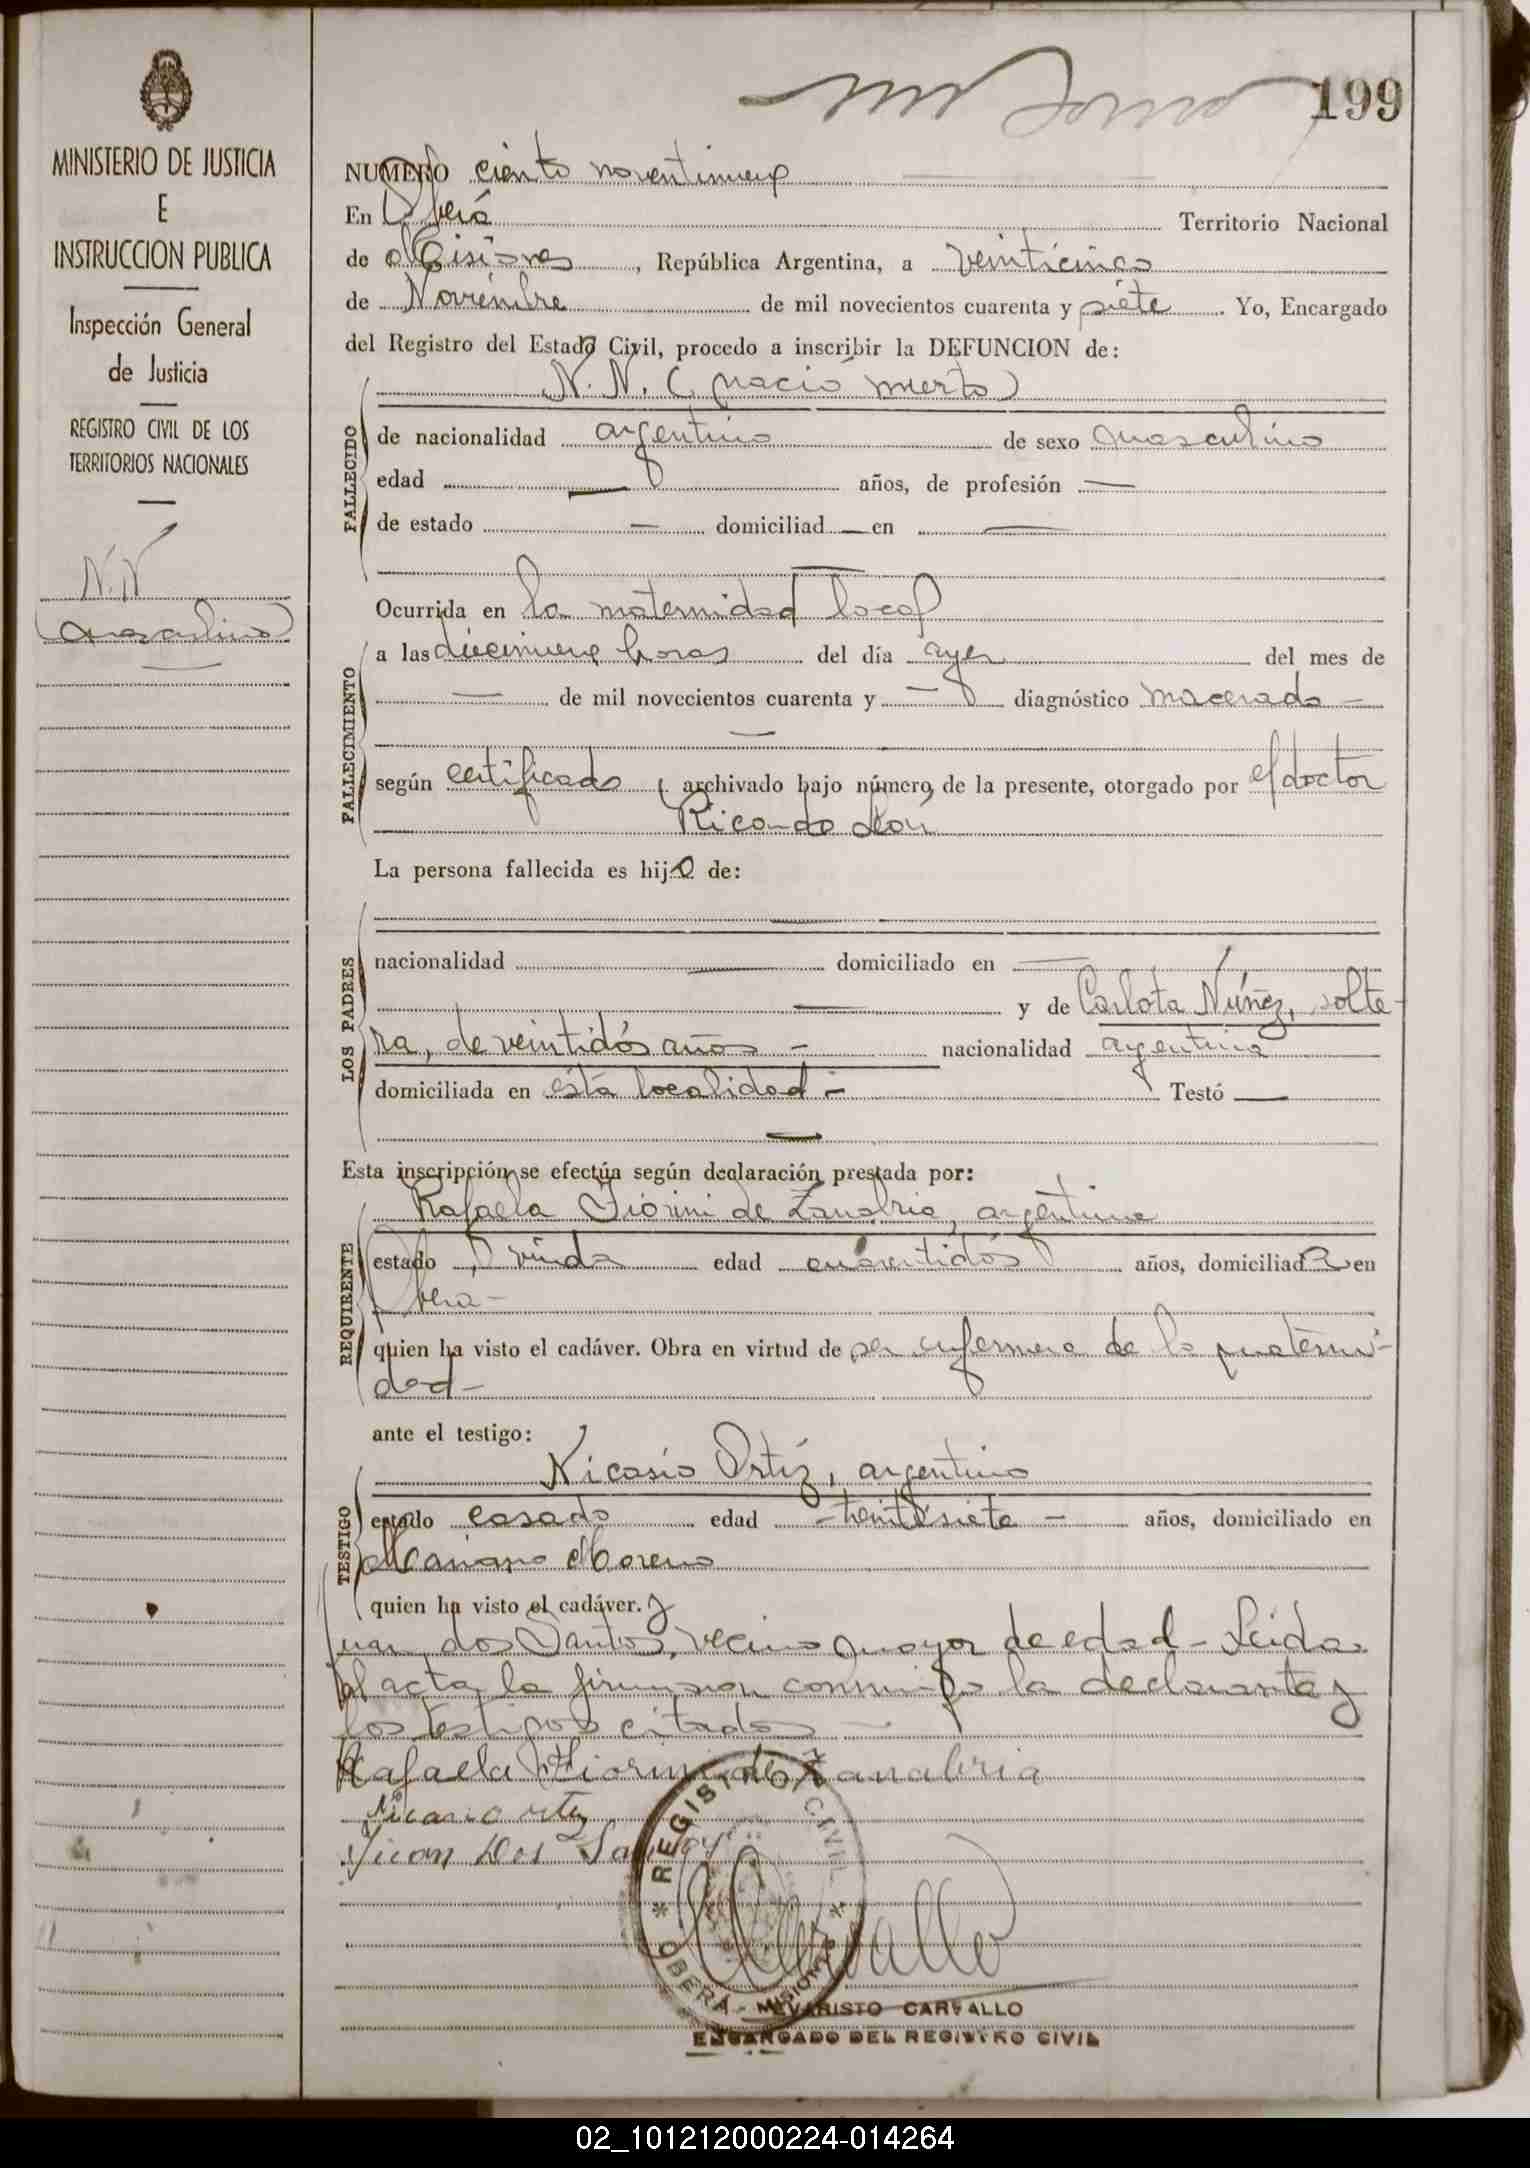 199
MINISTERIO DE JUSTICIA
E
INSTRUCCION PUBLICA
Inspección General
de Justicia
REGISTRO CIVIL DE LOS
TERRITORIOS NACIONALES
N.N
(masculino)
NUMERO ciento noventinueve
En Oberá Territorio Nacional
de Misiones, República Argentina, a veinticinco
de Noviembre de mil novecientos cuarenta y siete. Yo, Encargado
del Registro del Estado Civil, procedo a inscribir la DEFUNCION de:
N. N. (nació muerto)
FALLECIDO
de nacionalidad argentino de sexo masculino
edad — años, de profesión —
de estado — domiciliad — en —
Ocurrida en la maternidad local
FALLECIMIENTO
a las diecinueve horas del día ayer del mes de
— de mil novecientos cuarenta y — diagnóstico macerado —
según certificado, archivado bajo número de la presente, otorgado por el doctor
Ricardo León
La persona fallecida es hijo de:
LOS PADRES
nacionalidad — domiciliado en —
— y de Carlota Núñez, solte-
ra, de veintidós años — nacionalidad argentina
domiciliada en esta localidad - Testó —
Esta inscripción se efectúa según declaración prestada por:
REQUIRENTE
Rafaela Fiorini de Zanabria, argentina
estado viuda edad cuarentidós años, domiciliada en
Oberá -
quien ha visto el cadáver. Obra en virtud de ser enfermera de la materni-
dad -
ante el testigo:
TESTIGO
Nicasio Ortiz, argentino
estado casado edad - treintisiete - años, domiciliado en
Mariano Moreno
quien ha visto el cadáver. y
Juan dos Santos, vecino mayor de edad - Leída
el acta, la firmaron conmigo la declarante y
los testigos citados -
Rafaela Fiorini de Zanabria
Nicasio Ortiz
Juan Dos Santos
REGISTRO CIVIL
OBERA - MISIONES
Carvallo
EVARISTO CARVALLO
ENCARGADO DEL REGISTRO CIVIL
02_101212000224-014264